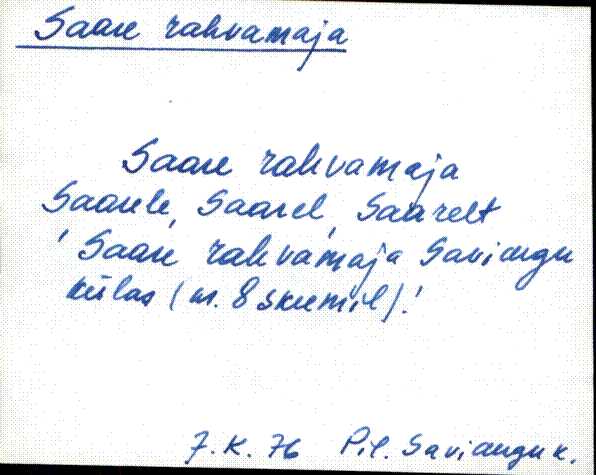 Saare rahvamaja
Saare rahvamaja
Saarele, Saarel, Saarelt
'Saare rahvamaja Saviangu
külas (nr. 8 skeemil).'
7. K. 76 Pil. Saviangu k.